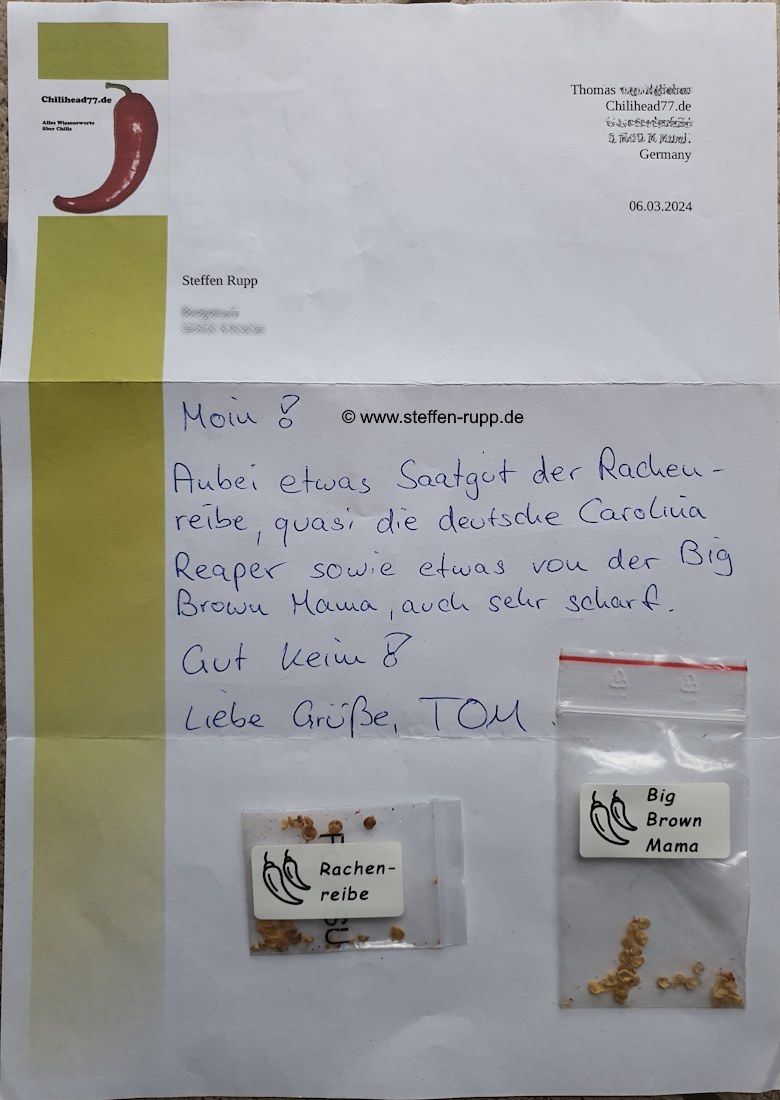 Chilihead77.de
Alles Wissenswerte
über Chilis
Thomas
Chilihead77.de
Germany
06.03.2024
Steffen Rupp
Moin!
© www.steffen-rupp.de
Anbei etwas Saatgut der Rachen-
reibe, quasi die deutsche Carolina
Reaper sowie etwas von der Big
Brown Mama, auch sehr scharf.
Gut Keim!
Liebe Grüße, TOM
Big
Brown
Mama
Rachen-
reibe